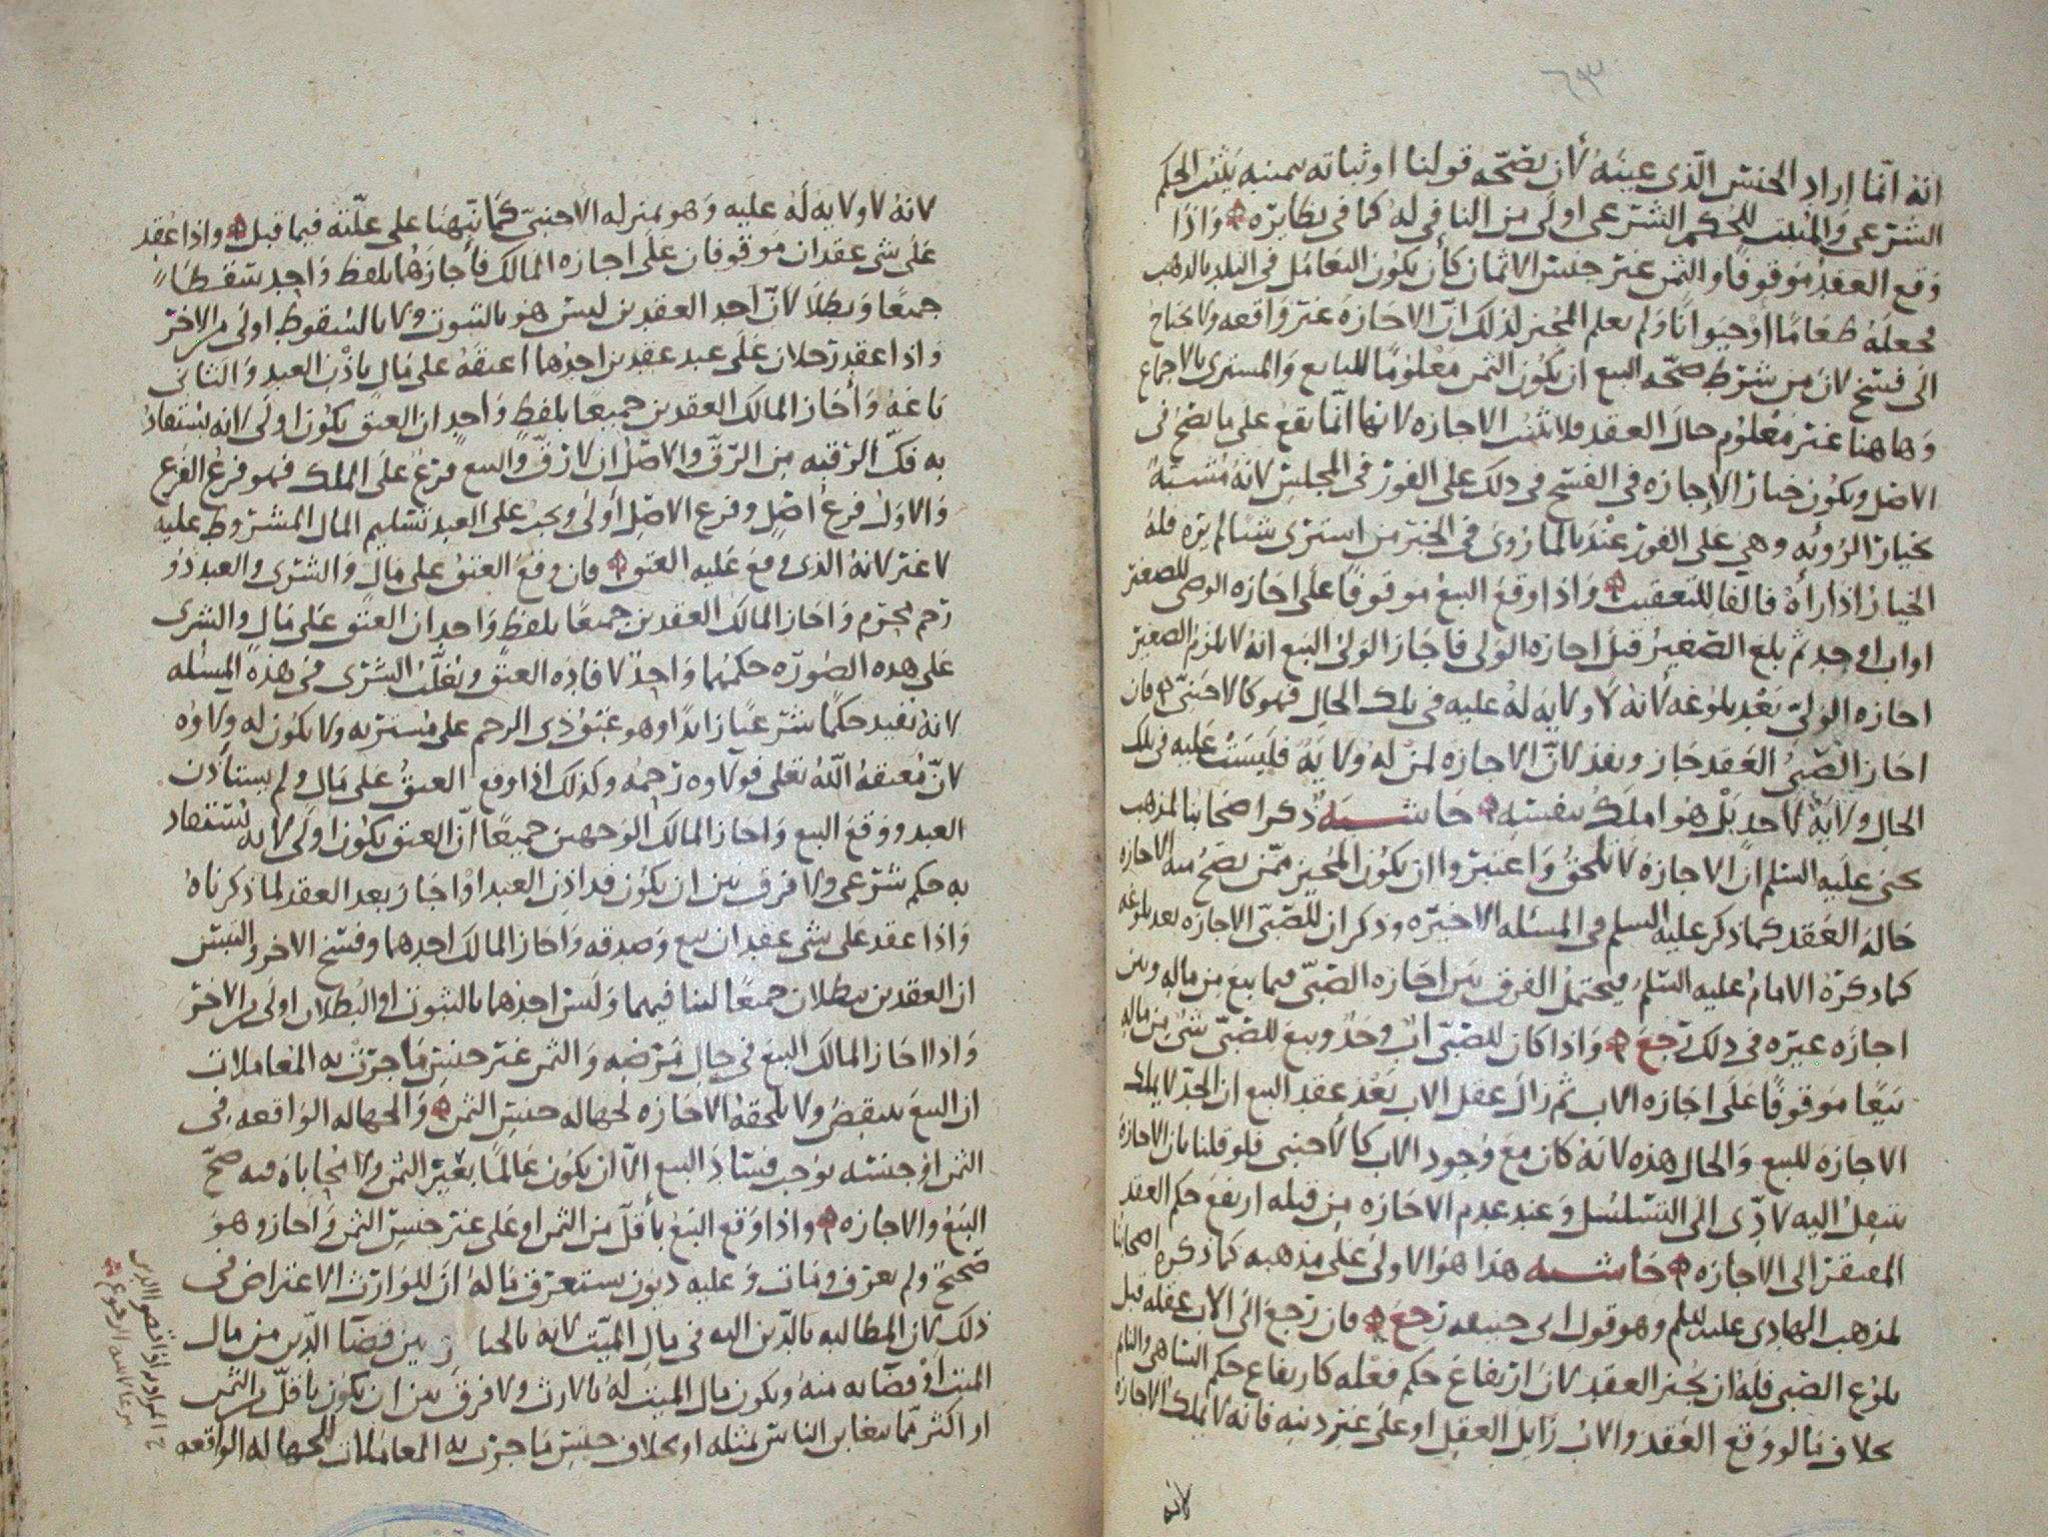 انه انما اراد الجنس الذى عينه لان بصحة قولنا او ثباته يمينه يثبت الحكم
الشرعى والمثبت للحكم الشرعى اولى من النافى له كما فى نظايره واذا
وقع العقد موقوفا والثمن غير جنس الاثمان كأن يكون التعامل فى البلد بالذهب
فجعله طعاما او حيوانا ولم يعلم المجيز لذلك ان الاجازة غير واقعه ولا يحتاج
الى فسخ لان من شرط صحه البيع ان يكون الثمن معلوما للبايع والمشترى بالاجماع
وهاهنا غير معلوم حال العقد فلا تثبت الاجازه لانها انما تقع على ما يصح فى
الاصل ويكون خيار الإجازه فى الفسخ فى ذلك على الفور فى المجلس لانه مشبه
بخيار الرؤيه وهى على الفور عندنا لما روى فى الخبر من اشترى شيا لم يره فله
الخيار اذا رأه فالفا للتعقيب واذا وقع البيع موقوفا على اجازه الوصى للصغير
او اب او جد ثم بلغ الصغير قبل اجازه الولى فاجاز الولى البيع انه لا يلزم الصغير
اجازه الولى بعد بلوغه لانه لا ولايه له عليه فى تلك الحال فهو كالاجنبى فان
اجاز الصبى العقد جاز ونفذ لان الاجازه لمن له ولاية فليست عليه فى تلك
الحال ولاية لاحد بل هو املك بنفسه حاشيه ذكر اصحابنا لمذهب
يحيى عليه السلم ان الاجازة لا تلحق واعتبروا ان يكون المجيز ممن تصح منه الاجازه
حاله العقد كما ذكر عليه السلم فى المسئله الاخيره وذكر ان للصبى الاجازه بعد بلوغه
كما ذكره الامام عليه السلم فيحتمل الفرق بين اجازه الصبى فيما بيع من ماله وبين
اجازه غيره فى ذلك رجع واذا كان للصبى اب وجد وبيع للصبى شى من ماله
بيعا موقوفا على اجازه الاب ثم زال عقل الاب بعد عقد البيع ان الجد لا يملك
الاجازه للبيع والحال هذه لانه كان مع وجود الاب كالأجنبى فلو قلنا بان الاجازه
تنتقل اليه لادى الى التسلسل وعند عدم الاجازه من قبله ارتفع حكم العقد
المفتقر الى الاجازه حاشيه هذا هو الاولى على مذهبه كما ذكره اصحابنا
لمذهب الهادى عليه السلم وهو قول ابى حنيفه رجع فان رجع الى الاب عقله قبل
بلوغ الصبى فله ان يجيز العقد لان ارتفاع حكم فعله كارتفاع حكم الساهى والنايم
بخلاف ما لو وقع العقد والاب زايل العقل او على غير دينه فانه لا يملك الاجازه
لانه
لانه لا ولايه له عليه وهو بمنزله الاجنبى كما نبهنا على علته فيما قبل واذا عقد
على شى عقدان موقوفان على اجازه المالك فأجازهما بلفظ واحد سقطا
جميعا وبطلا لان احد العقدين ليس هو بالثبوت ولا بالسقوط اولى من الاخر
واذا عقد رجلان على عبد عقدين احدهما اعتقه على مال باذن العبد والثانى
باعه وأجاز المالك العقدين جميعا بلفظ واحد ان العتق يكون اولى لانه يستفاد
به فك الرقبه من الرق والاصل ان لا رق والبيع فرع على الملك فهو فرع الفرع
والاول فرع اصل وفرع الاصل أولى ويجب على العبد تسليم المال المشروط عليه
لا غير لانه الذى وقع عليه العتق فان وقع العتق على مال والشرى والعبد ذو
رحم محرم واجاز المالك العقدين جميعا بلفظ واحد ان العتق على مال والشرى
على هذه الصوره حكمهما واحد لافاده العتق ويغلب الشرى فى هذه المسئله
لانه يفيد حكما شرعيا زايدا وهو عتق ذى الرحم على مشتريه ولا يكون له ولاوه
لان معتقه الله تعلى فولاوه رحمه وكذلك اذا وقع العتق على مال ولم يستأذن
العبد ووقع البيع واجاز المالك الوجهين جميعا ان العتق يكون اولى لانه يستفاد
به حكم شرعى ولا فرق بين ان يكون قد اذن العبد او اجاز بعد العقد لما ذكرناه
واذا عقد على شى عقدان بيع وصدقه واجاز المالك احدهما وفسخ الاخر والتبس
ان العقدين يبطلان جميعا لبنا فيهما وليس احدهما بالثبوت او البطلان اولى من الاخر
واذا اجاز المالك البيع فى حال مرضه والثمن غير جنس ما جرت به المعاملات
ان البيع ينتقض ولا يلحقه الاجازه لجهاله جنس الثمن والجهاله الواقعه فى
الثمن او جنسه توجب فساد البيع الا ان يكون عالما بغير الثمن ولا محاباه فيه صح
البيع والاجازه واذا وقع البيع بأقل من الثمن او على غير جنس الثمن واجاز وهو
صحيح ولم يعرف ومات وعليه ديون تستغرق ماله ان للوارث الاعتراض فى
ذلك لان المطالبه بالدين اليه فى مال الميت لانه بالخيار بين قضآ الدين من مال
الميت أو قضآيه منه ويكون مال الميت له بالارث ولا فرق بين ان يكون باقل من الثمن
او اكثر مما يتغابن الناس بمثله او بخلاف جنس ما جرت به المعاملات للجهاله الواقعه
ح المراد به اذا قضوا الدين